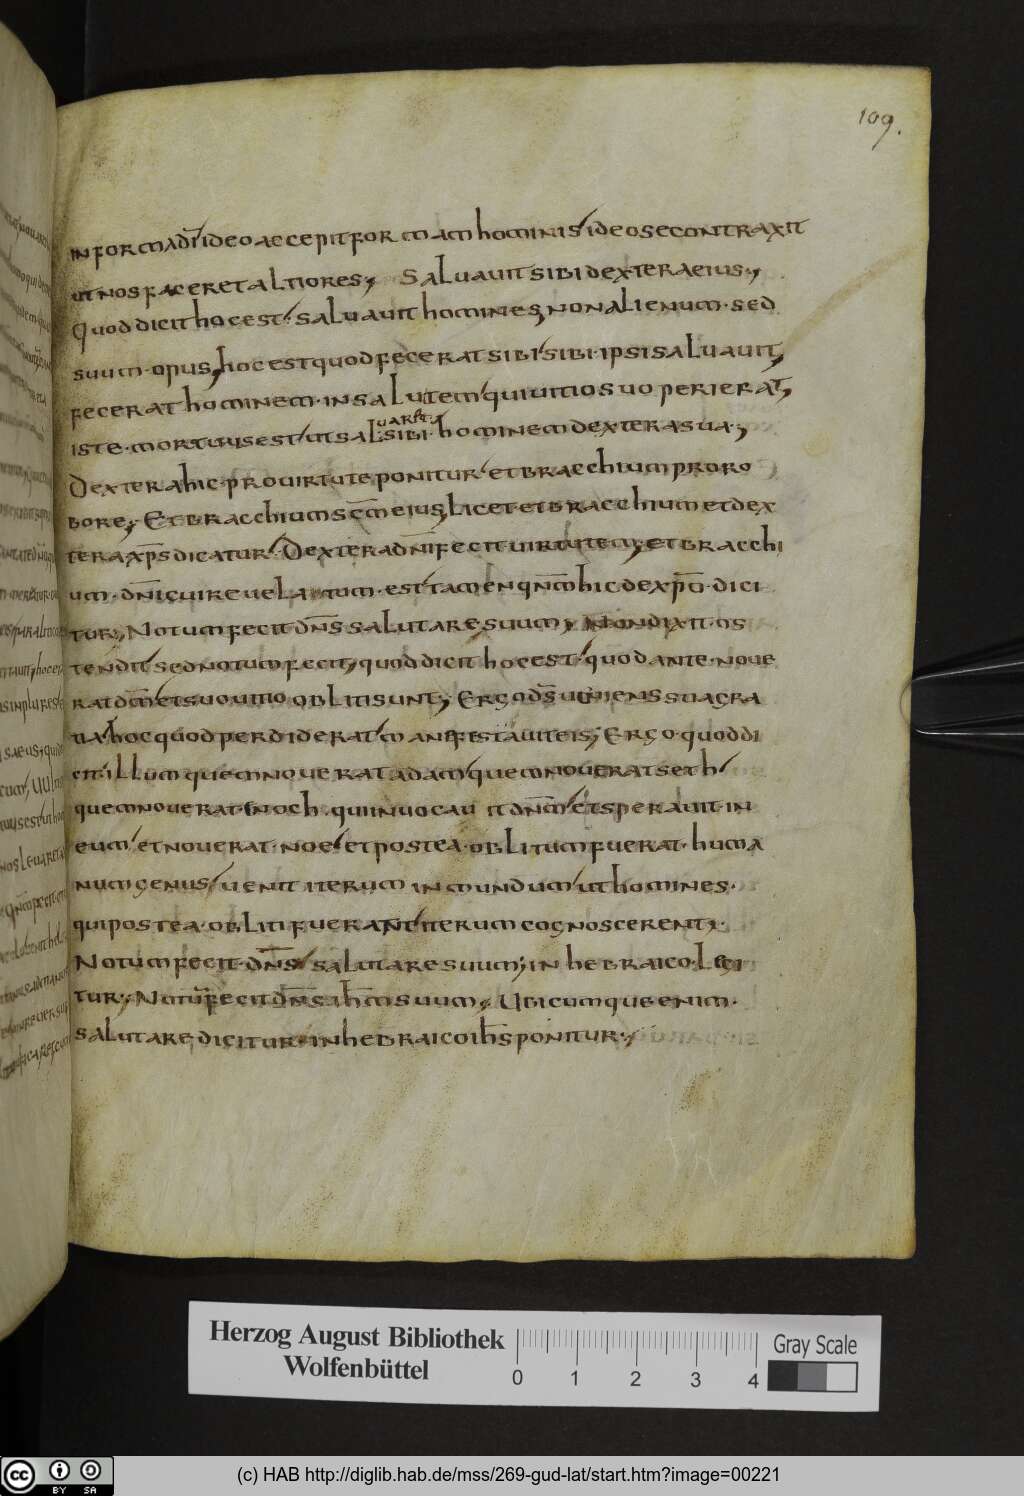 109.
in forma dī ideo accepit formam hominis ideo se contraxit
ut nos faceret altiores; Saluauit sibi dextera eius;
Quod dicit hoc est. saluauit homines non alienum. sed
suum. opus; hoc est quod fecerat sibi sibi. ipsi saluauit;
fecerat hominem. in salutem qui uitio suo perierat;
uarēt
iste. mortuus est ut sal sibi. hominem dextera sua;
Dextera hic. pro uirtute ponitur et bracchium pro ro
bore; Et bracchium scm̄ eius; licet et bracchium et dex
tera xp̄s dicatur. Dextera dn̄i fecit uirtutem; et bracchi
um. dn̄i cui reuelatum. est tamen qn̄m hic de xp̄o. dici
tur; Notum fecit dn̄s salutare suum; Non dixit. os
tendit sed notum fecit; quod dicit hoc est quod ante. noue
rant dm̄ et suo uitio obliti sunt; Ergo ds̄ ueniens sua gra
tia hoc quod perdiderat manifestauit eis; Ergo. quod di
cit illum quem nouerat adam quem nouerat seth
quem nouerat enoch. qui inuocauit dn̄m et sperauit. in
eum et nouerat. noe et postea. oblitum fuerat. huma
num genus uenit iterum in mundum ut homines.
qui postea. obliti fuerant iterum cognoscerent;
Notum fecit. dn̄s salutare suum; in hebraico. legi
tur; Notum fecit dn̄s ihm̄ suum; Ubicumque enim.
salutare dicitur in hebraico ihs̄ ponitur;
Herzog August Bibliothek
Wolfenbüttel
0 1 2 3 4
Gray Scale
cc BY SA
(c) HAB http://diglib.hab.de/mss/269-gud-lat/start.htm?image=00221